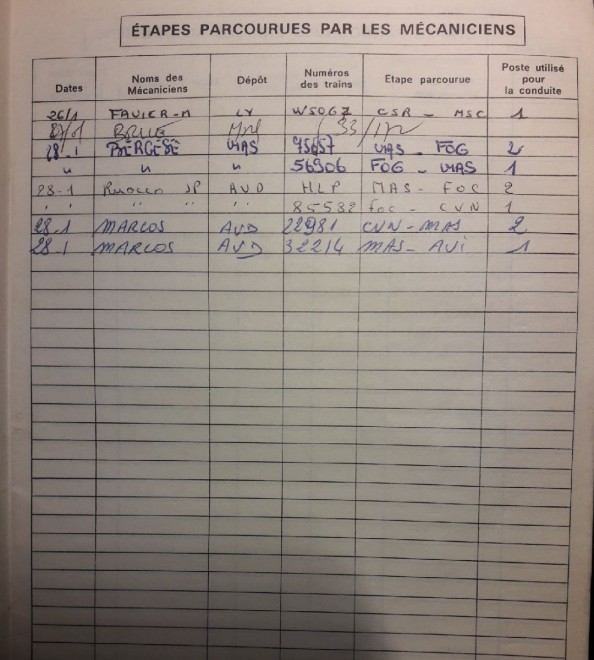 ÉTAPES PARCOURUES PAR LES MÉCANICIENS
Dates Noms des Mécaniciens Dépôt Numéros des trains Etape parcourue Poste utilisé pour la conduite
26/1 FAVIER-M LY W5067 CSR - MSC 1
28-1 BERGESE MAS 75657 MAS - FOG 2
" " " 56906 FOG - MAS 1
28-1 JP AVD HLP MAS - FOC 2
" " " " 85532 foc - CVN 1
28-1 MARCOS AVD 22981 CVN - MAS 2
28-1 MARCOS AVD 32214 MAS - AVi 1